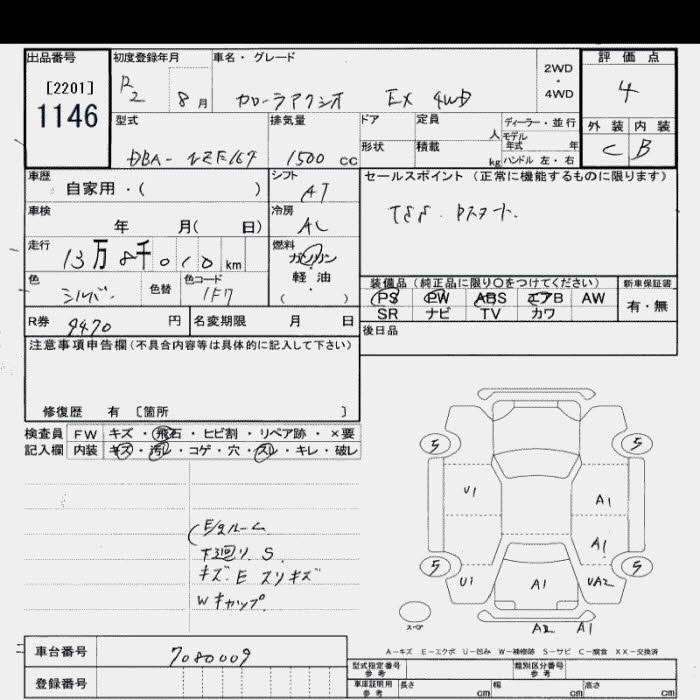 出品番号
[2201]
1146
初度登録年月
R2 8月
車名・グレード
カローラアクシオ EX 4WD
2WD
・
4WD
評価点
4
外装 内装
C B
型式
DBA-NZE164
排気量
1500 cc
ドア
定員
人
形状
積載
kg
ディーラー・並行
モデル
年式 年
ハンドル 左・右
車歴
自家用・( )
シフト
AT
車検
年 月( 日)
冷房
AC
走行
13万8千010km
燃料
ガソリン
軽油
( )
色
シルバー
色替
色コード
1F7
R券 9470 円
名変期限 月 日
セールスポイント(正常に機能するものに限ります)
TSS.
装備品(純正品に限り〇をつけてください)
PS PW ABS エアB AW
SR ナビ TV カワ
新車保証書
有・無
後日品
注意事項申告欄(不具合内容等は具体的に記入して下さい)
修復歴 有 〔箇所 〕
検査員
記入欄
FW キズ・飛石・ヒビ割・リペア跡・×要
内装 キズ・汚レ・コゲ・穴・スレ・キレ・破レ
E/gルーム
下回り S.
キズ.E スリキズ
Wキャップ
5 5
U1 A1
A1
5 5
U1 A1 UA2
A2 A1
スペア
A-キズ E-エクボ U-凹み W-補修跡 S-サビ C-腐食 XX-交換済
車台番号
7080009
登録番号
型式指定番号
参考
類別区分番号
参考
車庫証明用
参考
長さ cm 幅 cm 高さ cm